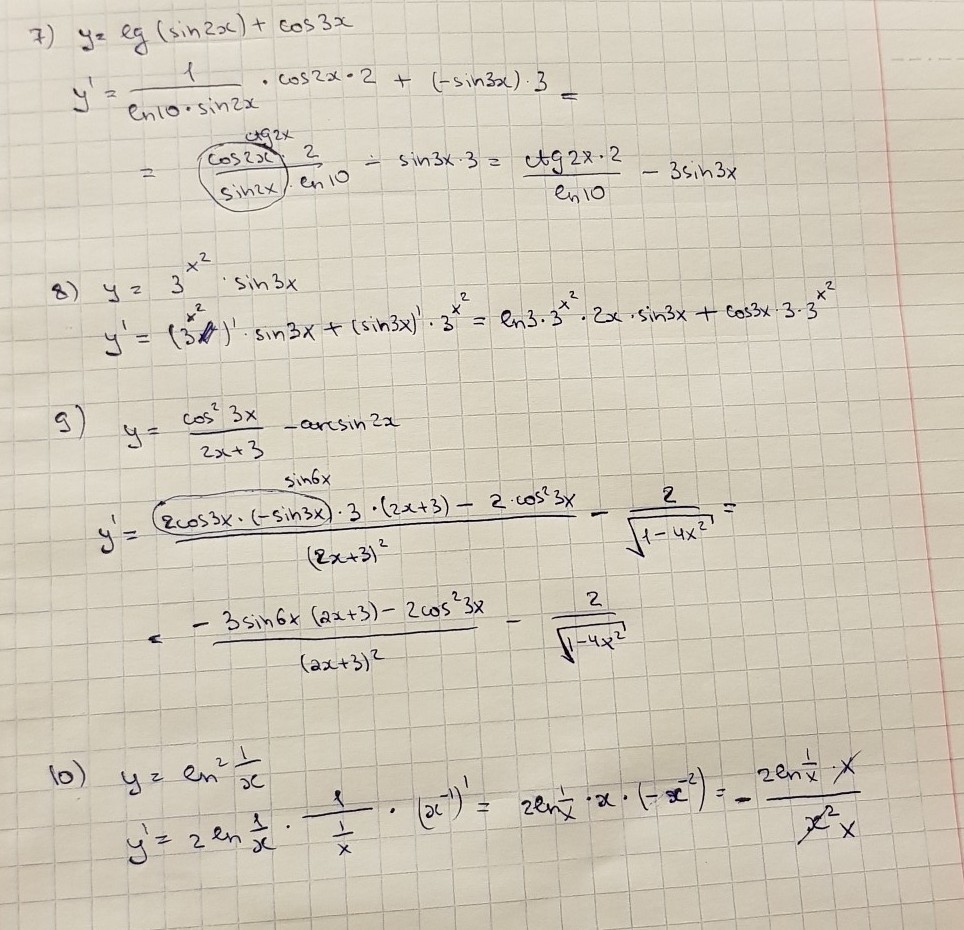 7) y = lg (sin2x) + cos3x
y' = 1/(ln10·sin2x) · cos2x·2 + (-sin3x)·3 =
ctg2x
= (cos2x · 2)/(sin2x · ln10) - sin3x·3 = (ctg2x·2)/(ln10) - 3sin3x
8) y = 3^(x^2) · sin3x
y' = (3^(x^2))' · sin3x + (sin3x)' · 3^(x^2) = ln3·3^(x^2) · 2x · sin3x + cos3x·3·3^(x^2)
9) y = (cos²3x)/(2x+3) - arcsin2x
sin6x
y' = (2cos3x·(-sin3x)·3·(2x+3) - 2·cos²3x)/((2x+3)²) - 2/√(1-4x²) =
= (-3sin6x (2x+3) - 2cos²3x)/((2x+3)²) - 2/√(1-4x²)
10) y = ln² 1/x
y' = 2 ln 1/x · 1/(1/x) · (x⁻¹)' = 2ln 1/x · x · (-x⁻²) = - (2ln 1/x · x)/(x² x)